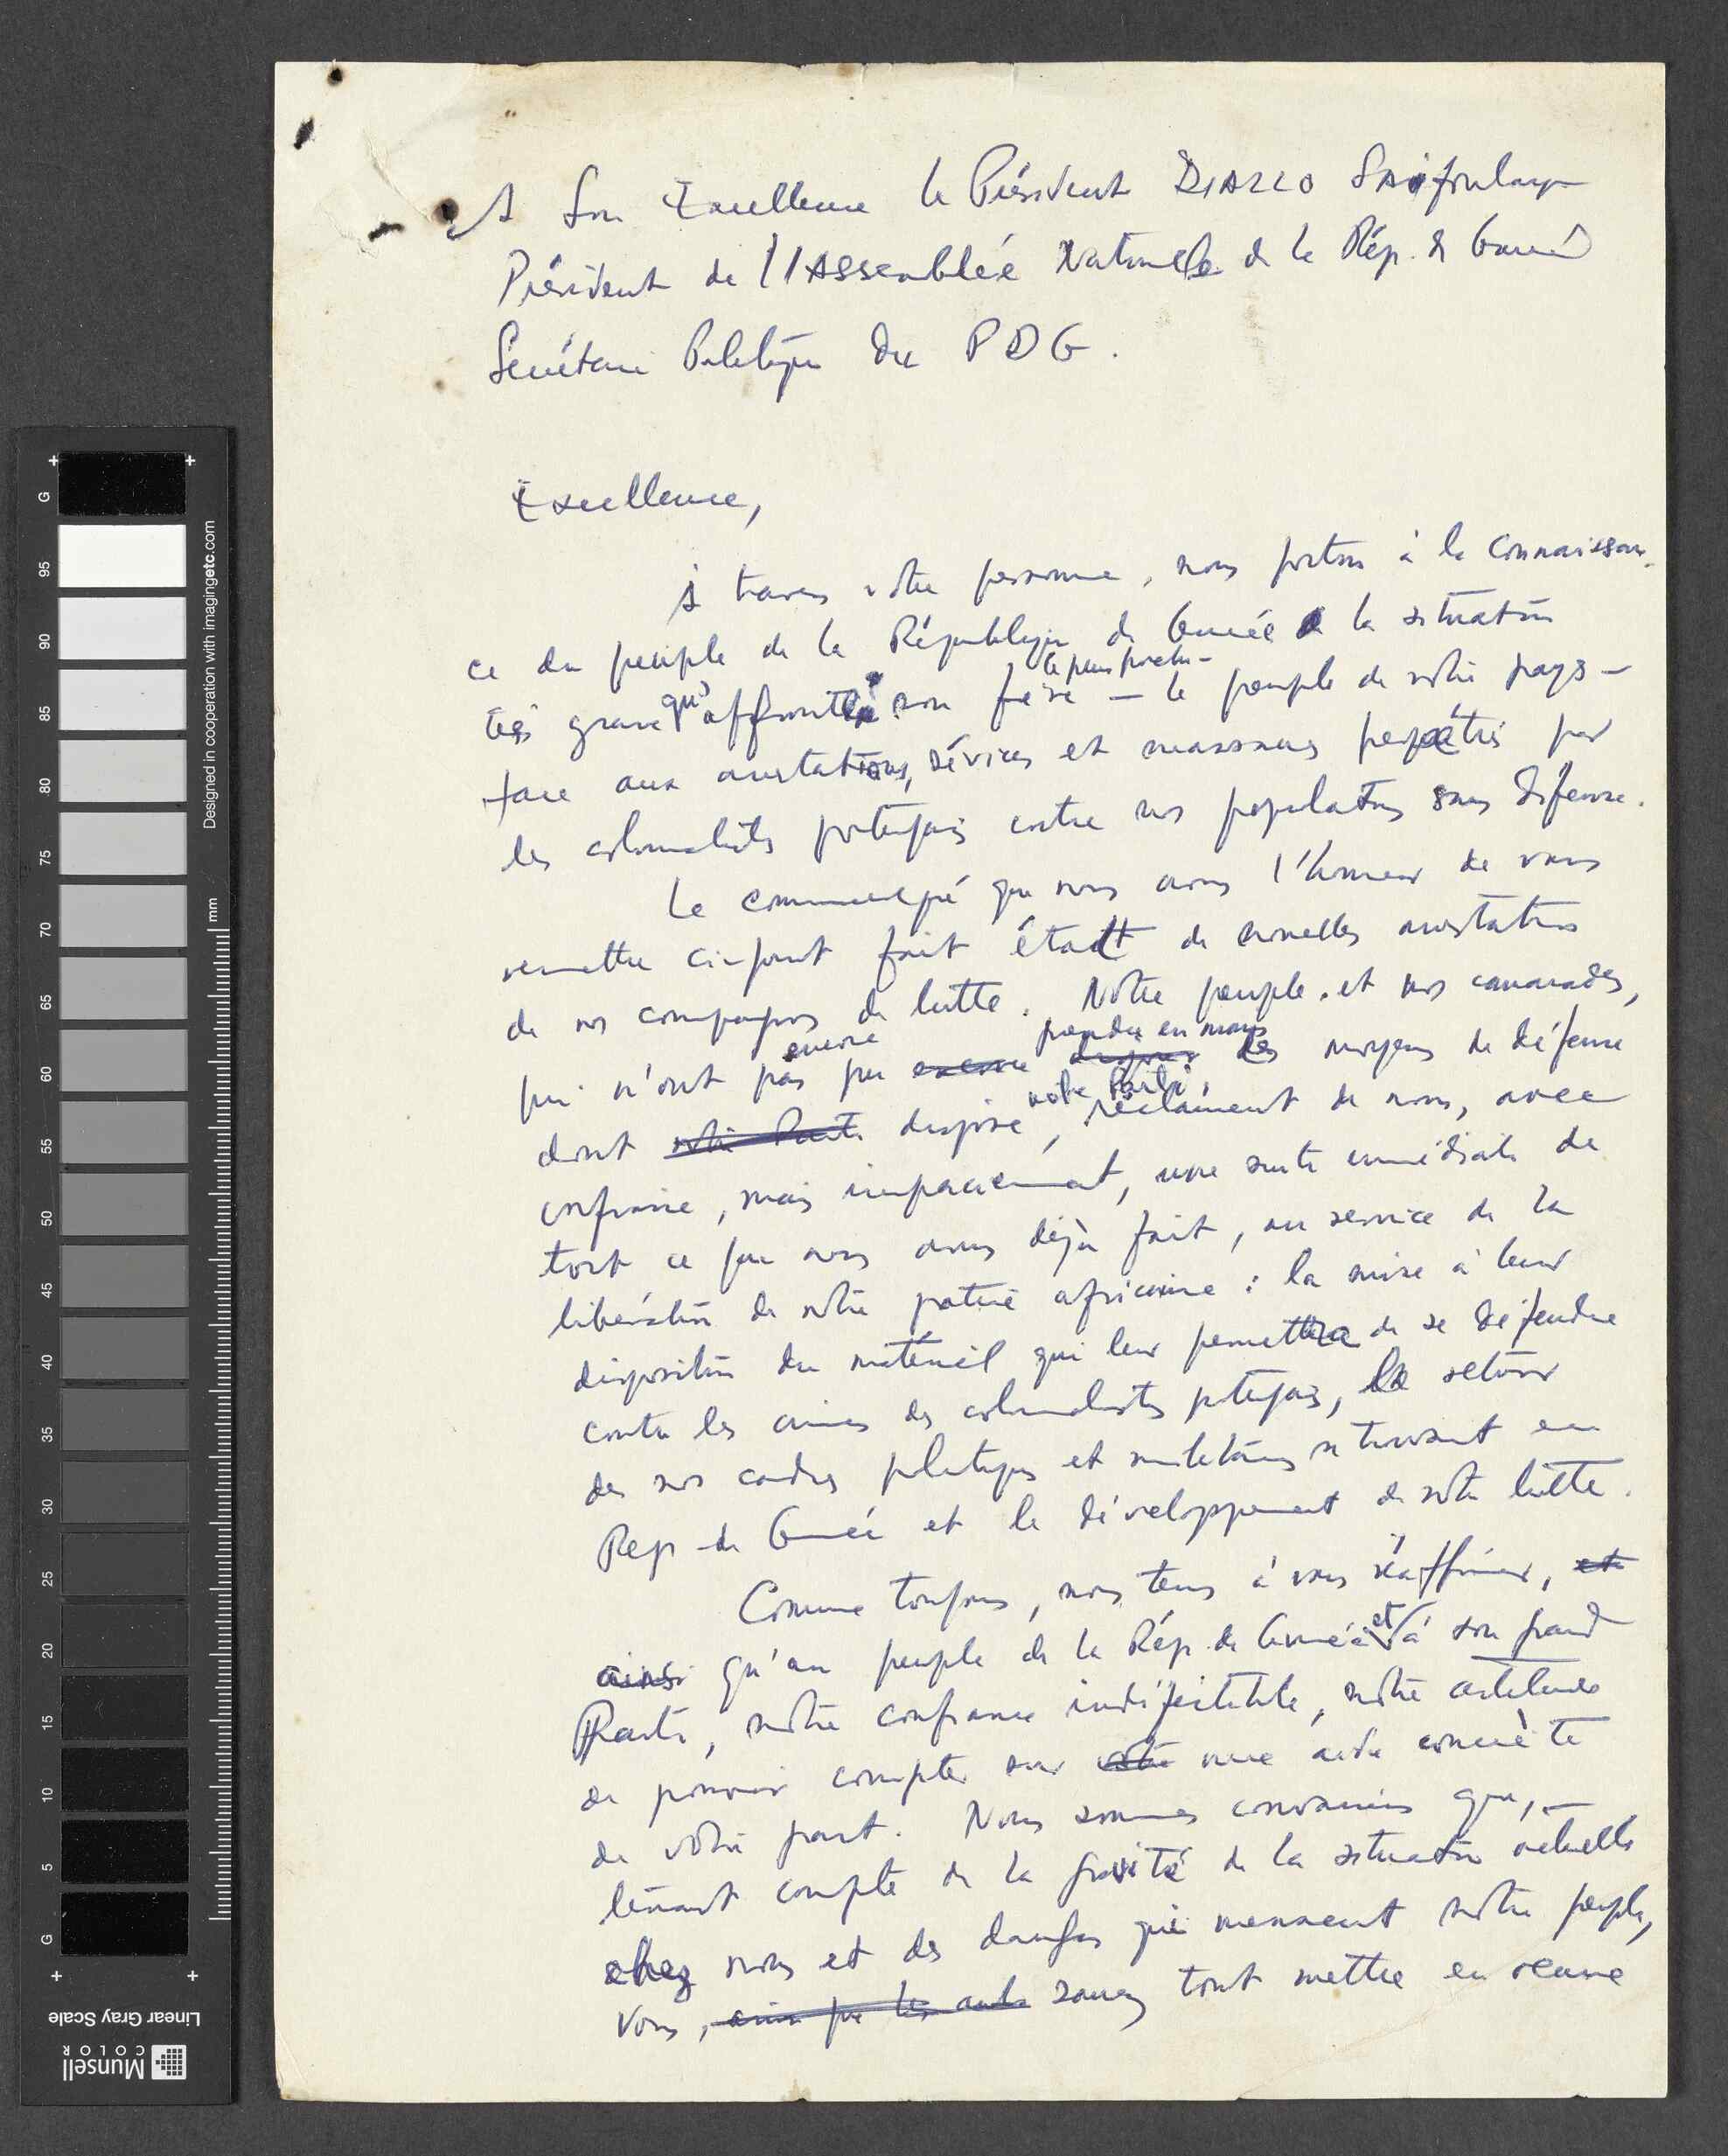 A Son Excellence le Président DIALLO Saifoulaye
Président de l'Assemblée Nationale de la Rép. de Guinée
Secrétaire Politique du PDG.
Excellence,
A travers votre personne, nous portons à la connaissan-
ce du peuple de la République de Guinée la situation
très grave qu'affronte son frère le plus proche — le peuple de notre pays —
face aux arrestations, sévices et massacres perpétrés par
les colonialistes portugais contre nos populations sans défense.
Le communiqué que nous avons l'honneur de vous
remettre ci-joint fait état de nouvelles arrestations
de nos compagnons de lutte. Notre peuple et nos camarades,
qui n'ont pas encore pu encore prendre en mains disposer des moyens de défense
dont notre Parti dispose notre Parti, réclament de nous, avec
confiance, mais impatiemment, une suite immédiate de
tout ce que nous avons déjà fait, au service de la
libération de notre patrie africaine : la mise à leur
disposition du matériel qui leur permettra de se défendre
contre les crimes des colonialistes portugais, le retour
de nos cadres politiques et militaires se trouvant en
Rep. de Guinée et le développement de notre lutte.
Comme toujours, nous tenons à vous réaffirmer, et
ainsi qu'au peuple de la Rép. de Guinée et à son grand
Parti, notre confiance indéfectible, notre certitude
de pouvoir compter sur votre une aide concrète
de votre part. Nous sommes convaincus que, —
tenant compte de la gravité de la situation actuelle
chez nous et des dangers qui menacent notre peuple,
vous, ainsi que les autres saurez tout mettre en oeuvre
G
95
90
85
80
75
70
65
60
55
50
45
40
35
30
25
20
15
10
5
G
mm
Designed in cooperation with imagingetc.com
Linear Gray Scale
Munsell
COLOR